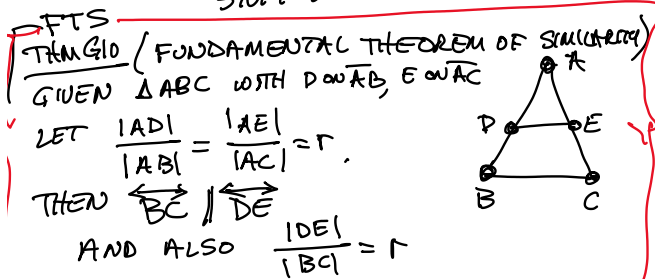 FTS
THM G10 (FUNDAMENTAL THEOREM OF SIMILARITY)
GIVEN ΔABC WITH D ON AB, E ON AC
LET |AD|/|AB| = |AE|/|AC| = r.
THEN BC || DE
AND ALSO |DE|/|BC| = r
A
D E
B C